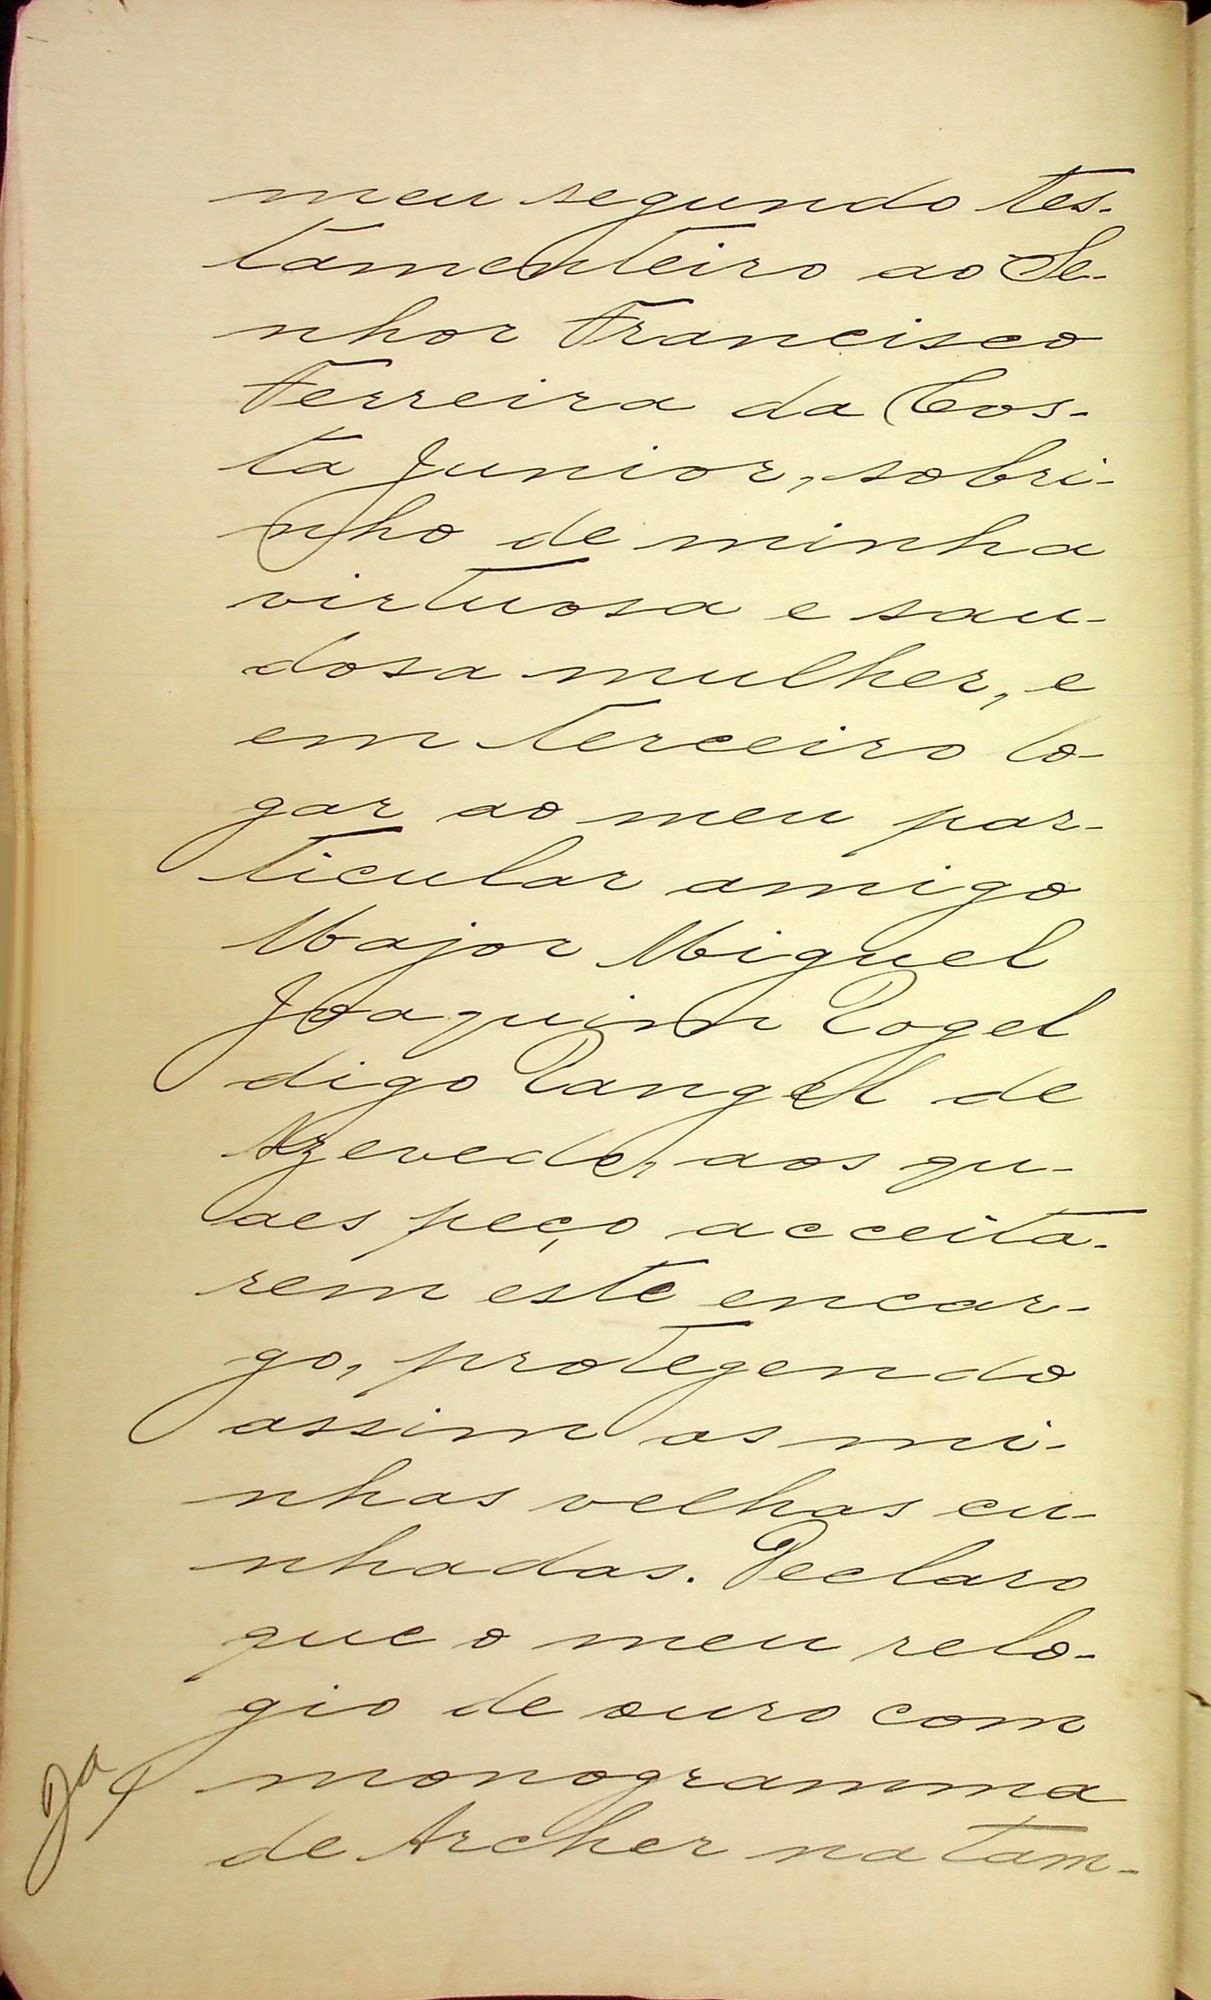 meu segundo tes-
tamenteiro ao Se-
nhor Francisco
Ferreira da Cos-
ta Junior, sobri-
nho de minha
virtuosa e sau-
dosa mulher, e
em terceiro lo-
gar ao meu par-
ticular amigo
Major Miguel
Joaquim Rogel
digo Rangel de
Azevedo, aos qu-
aes peço acceita-
rem este encar-
go, protegendo
assim as mi-
nhas velhas cu-
nhadas. Declaro
que o meu relo-
gio de ouro com
Ja
monogramma
de Archer na tam-